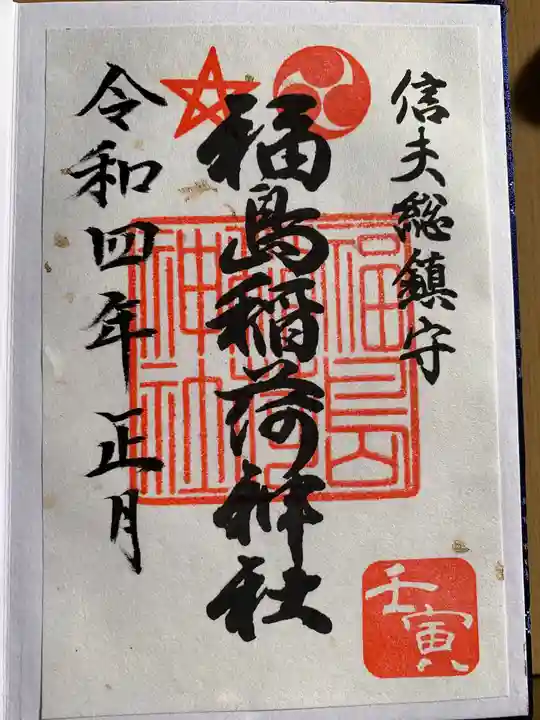 信夫総鎮守
福島稲荷神社
令和四年正月
福島稲荷神社
壬寅